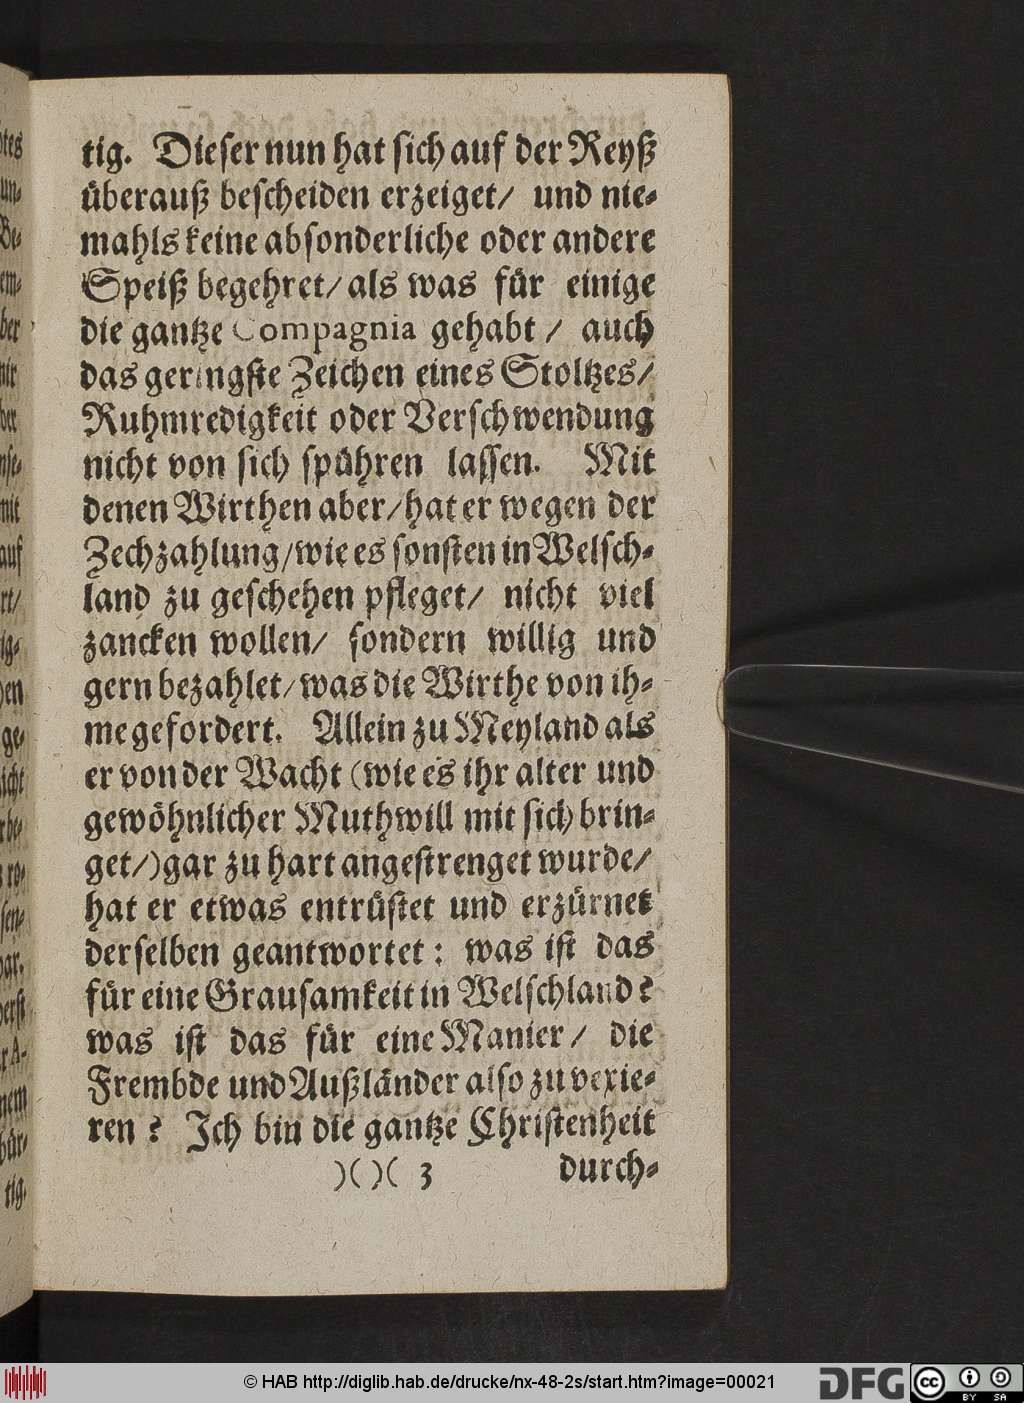 tig. Dieser nun hat sich auf der Reyß
überauß bescheiden erzeiget/ und nie-
mahls keine absonderliche oder andere
Speiß begehret/ als was für einige
die gantze Compagnia gehabt / auch
das geringste Zeichen eines Stoltzes/
Ruhmredigkeit oder Verschwendung
nicht von sich spühren lassen. Mit
denen Wirthen aber/ hat er wegen der
Zechzahlung/ wie es sonsten in Welsch-
land zu geschehen pfleget/ nicht viel
zancken wollen/ sondern willig und
gern bezahlet/ was die Wirthe von ih-
me gefordert. Allein zu Meyland als
er von der Wacht (wie es ihr alter und
gewöhnlicher Muthwill mit sich brin-
get/) gar zu hart angestrenget wurde/
hat er etwas entrüstet und erzürnet
derselben geantwortet: was ist das
für eine Grausamkeit in Welschland?
was ist das für eine Manier/ die
Frembde und Außländer also zu vexie-
ren? Ich bin die gantze Christenheit
)( )( 3 durch-
tes
un-
Be-
em-
ber
nir
ber
nse-
mit
auf
rt/
ig-
en
ge-
icht
rbe-
ro-
sen-
bar.
erst
r A-
nem
bür-
tig.
© HAB http://diglib.hab.de/drucke/nx-48-2s/start.htm?image=00021
DFG
cc BY SA